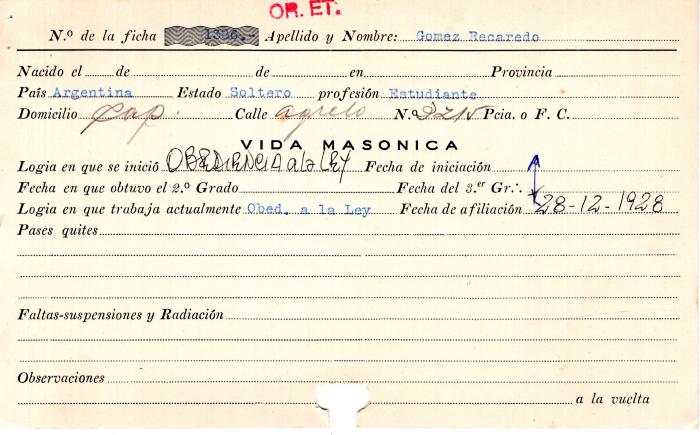 OR. ET.
N.º de la ficha 1386.- Apellido y Nombre: Gomez Recaredo
Nacido el de de en Provincia
País Argentina Estado Soltero profesión Estudiante
Domicilio Cap. Calle Agrelo N.º 3215 Pcia. o F. C.
VIDA MASONICA
Logia en que se inició OBEDIENCIA a la LEY Fecha de iniciación
Fecha en que obtuvo el 2.º Grado Fecha del 3.er Gr∴
Logia en que trabaja actualmente Obed. a la Ley Fecha de afiliación 28-12-1928
Pases quites
Faltas-suspensiones y Radiación
Observaciones
a la vuelta